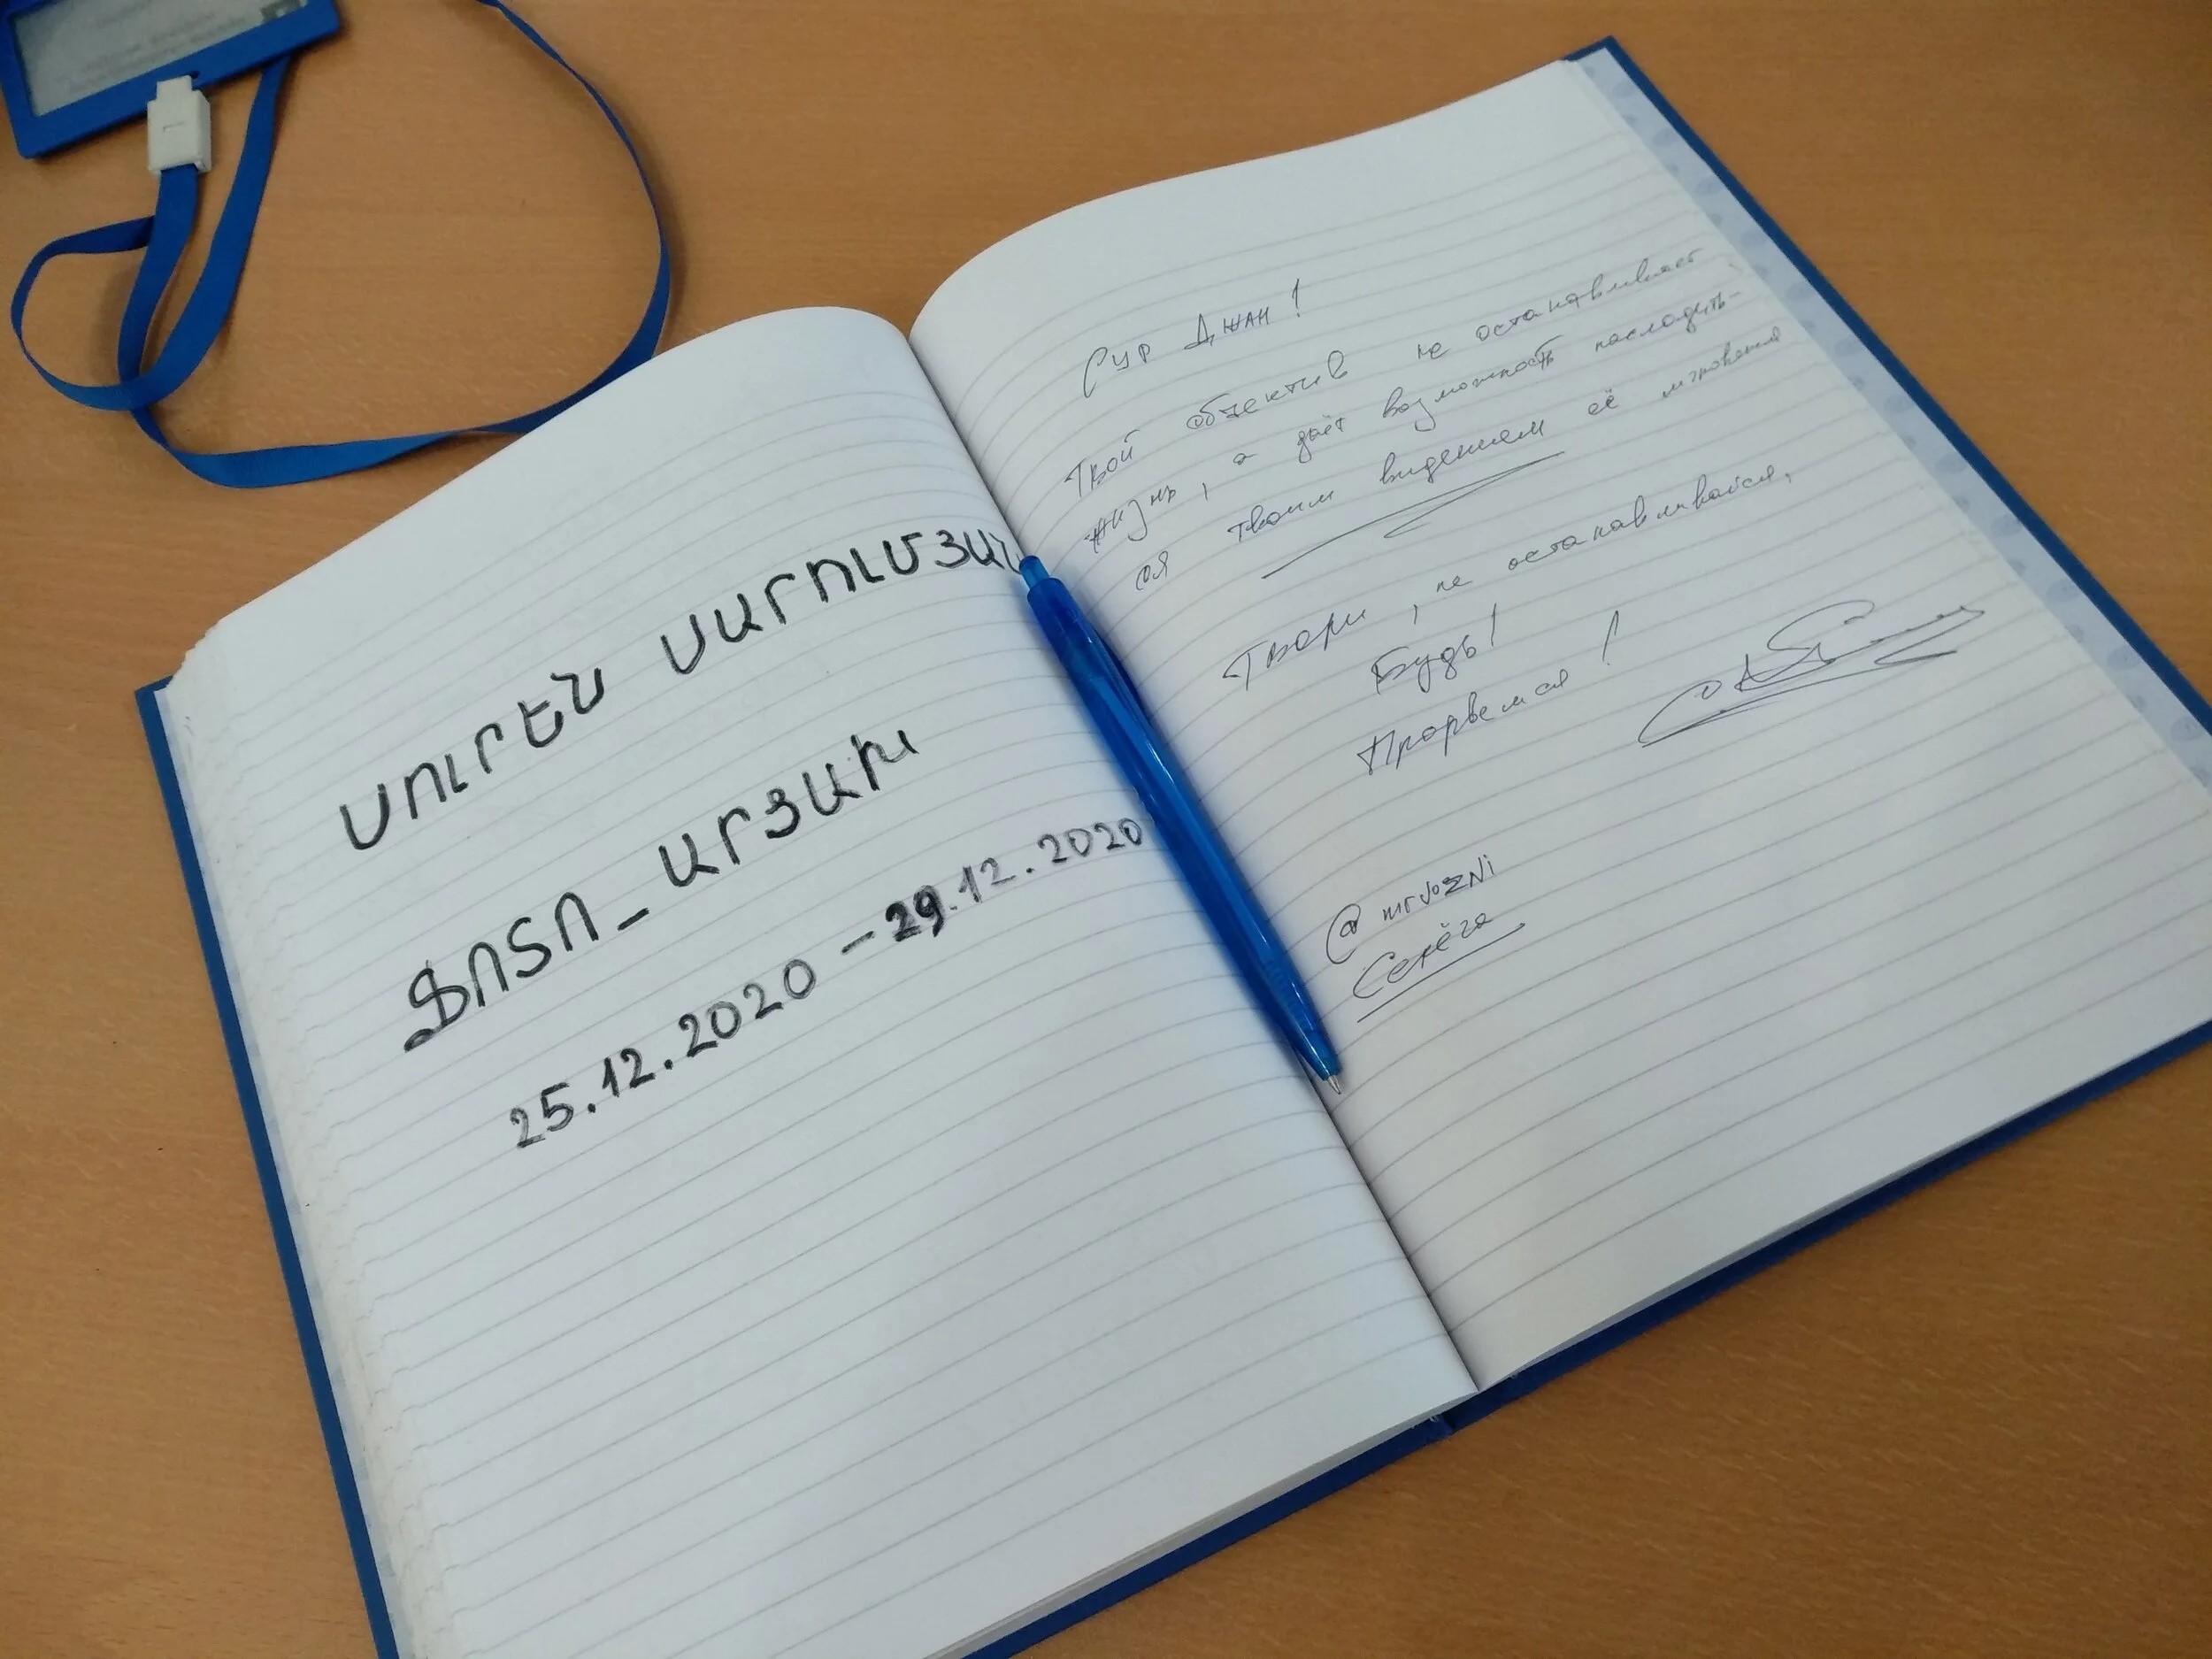 ՍՈՒՐԵՆ ՍԱՐՈՒՄՅԱՆ
ՖՈՏՈ_ԱՐՑԱԽ
25.12.2020 – 29.12.2020
Сур Джан!
Твой объектив не останавливает
жизнь, а даёт возможность насладить-
ся твоим видением её мгновения
Твори, не останавливайся,
Будь!
Прорвемся!
@mrvozni
Серёга